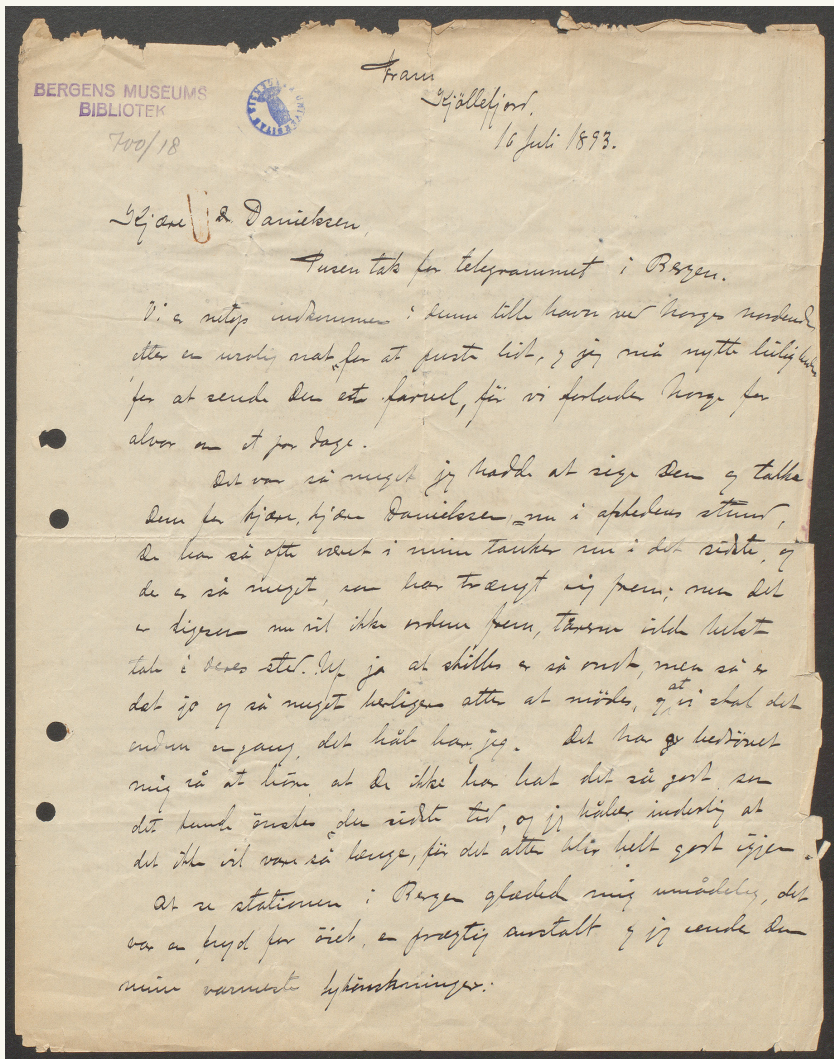 BERGENS MUSEUMS
BIBLIOTEK
700/18
Fram
Kjöllefjord,
16 Juli 1893.
Kjære Dr Danielssen,
Tusen tak for telegrammet i Bergen.
Vi er netop indkommen i denne lille havn ved Norges nordende
efter en urolig nat for at puste lidt, og jeg må nytte
for at sende Dem et farvel, för vi forlader Norge for
alvor om et par dage.
Det var så meget jeg hadde at sige Dem og takke
Dem for kjære, kjære Danielssen nu i afskedens stund,
De har så ofte været i mine tanker nu i det sidste, og
de er så meget, som har trængt sig frem; men det
er ligesom nu vil ikke ordene frem, tårerne vilde helst
tale i deres sted. Uf ja at skilles er så ondt, men så er
det jo og så meget herligere atter at mödes, og at vi skal det
endnu engang, det håb har jeg. Det har bedrövet
mig så at höre, at De ikke har hat det så godt som
det kunde önskes den sidste tid, og jeg håber inderlig at
det ikke vil vare så længe, för det atter blir helt godt igjen.
At se stationen i Bergen glæded mig umådelig, det
var en fryd for öiet, en prægtig anstalt og jeg sender Dem
mine varmeste lykönskninger.